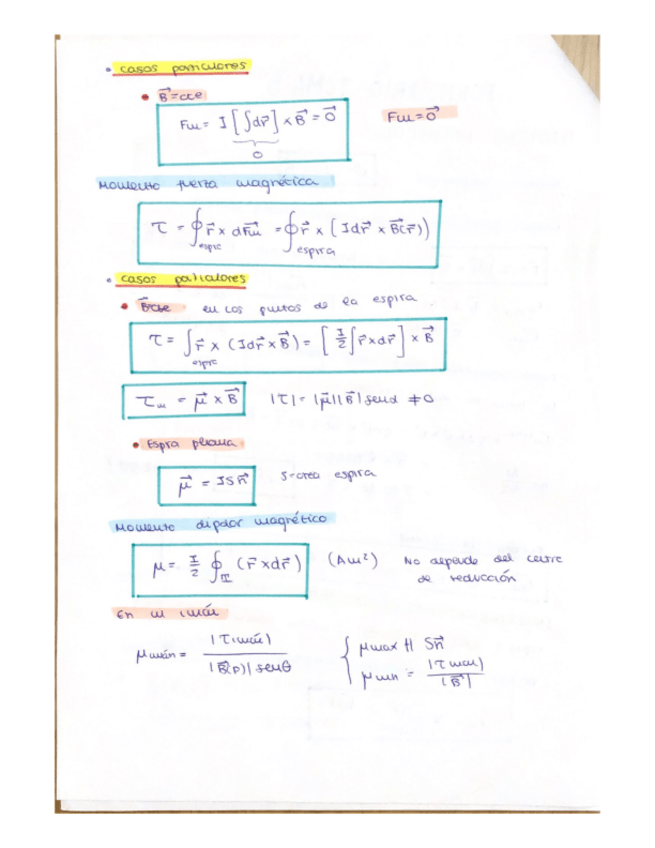 • casos particulares
• B⃗=cte
Fm = I [∫dr⃗] × B⃗ = 0⃗ Fm = 0⃗
0
Momento fuerza magnética
τ = ∮espira r⃗ × dF⃗m = ∮espira r⃗ × (Idr⃗ × B⃗(r⃗))
• casos particulares
• B⃗cte en los puntos de la espira
τ = ∫espira r⃗ × (Idr⃗ × B⃗) = [I/2 ∫r⃗×dr⃗] × B⃗
τm = μ⃗ × B⃗ |τ| = |μ⃗||B⃗| senα ≠ 0
• Espira plana
μ⃗ = ISn⃗ S=area espira
Momento dipolar magnético
μ = I/2 ∮ (r⃗ × dr⃗) (Am²) No depende del centro
de reducción
En un imán
μimán = |τ(imán)| / |B⃗(p)| senθ { μmax // Sn⃗
μmin = |τmax| / |B⃗|